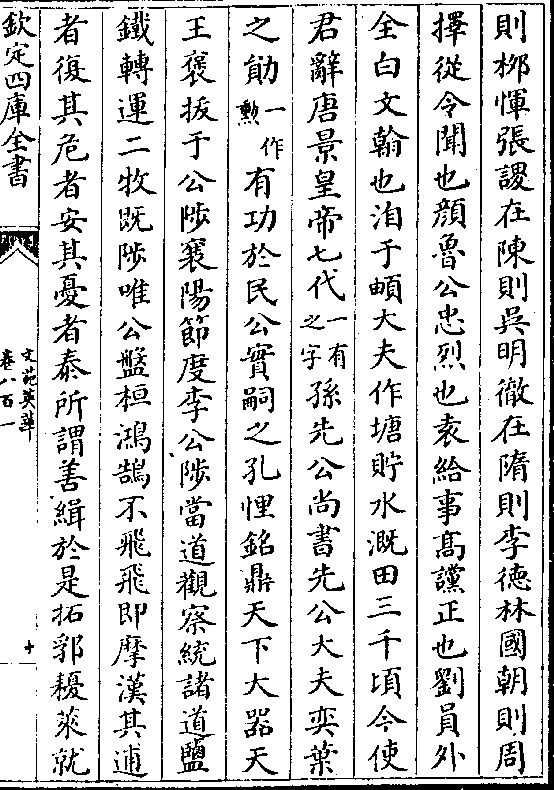 則栁惲張謖在陳則吳明徹在隋則李徳林國朝則周
擇從令聞也顔魯公忠烈也袁給事髙讜正也劉員外
全白文翰也洎于頔大夫作塘貯水溉田三千頃今使
君辭唐景皇帝七代一有之字孫先公尚書先公大夫奕葉
之勛一作勲有功於民公實嗣之孔悝銘鼎天下大器天
王襃拔于公陟襄陽節度李公陟當道觀察統諸道鹽
鐵轉運二牧既陟唯公盤桓鴻鵠不飛飛即摩漢其逋
者復其危者安其憂者泰所謂善緝於是拓郛耰萊就
欽定四庫全書
文苑英華
卷八百一
十